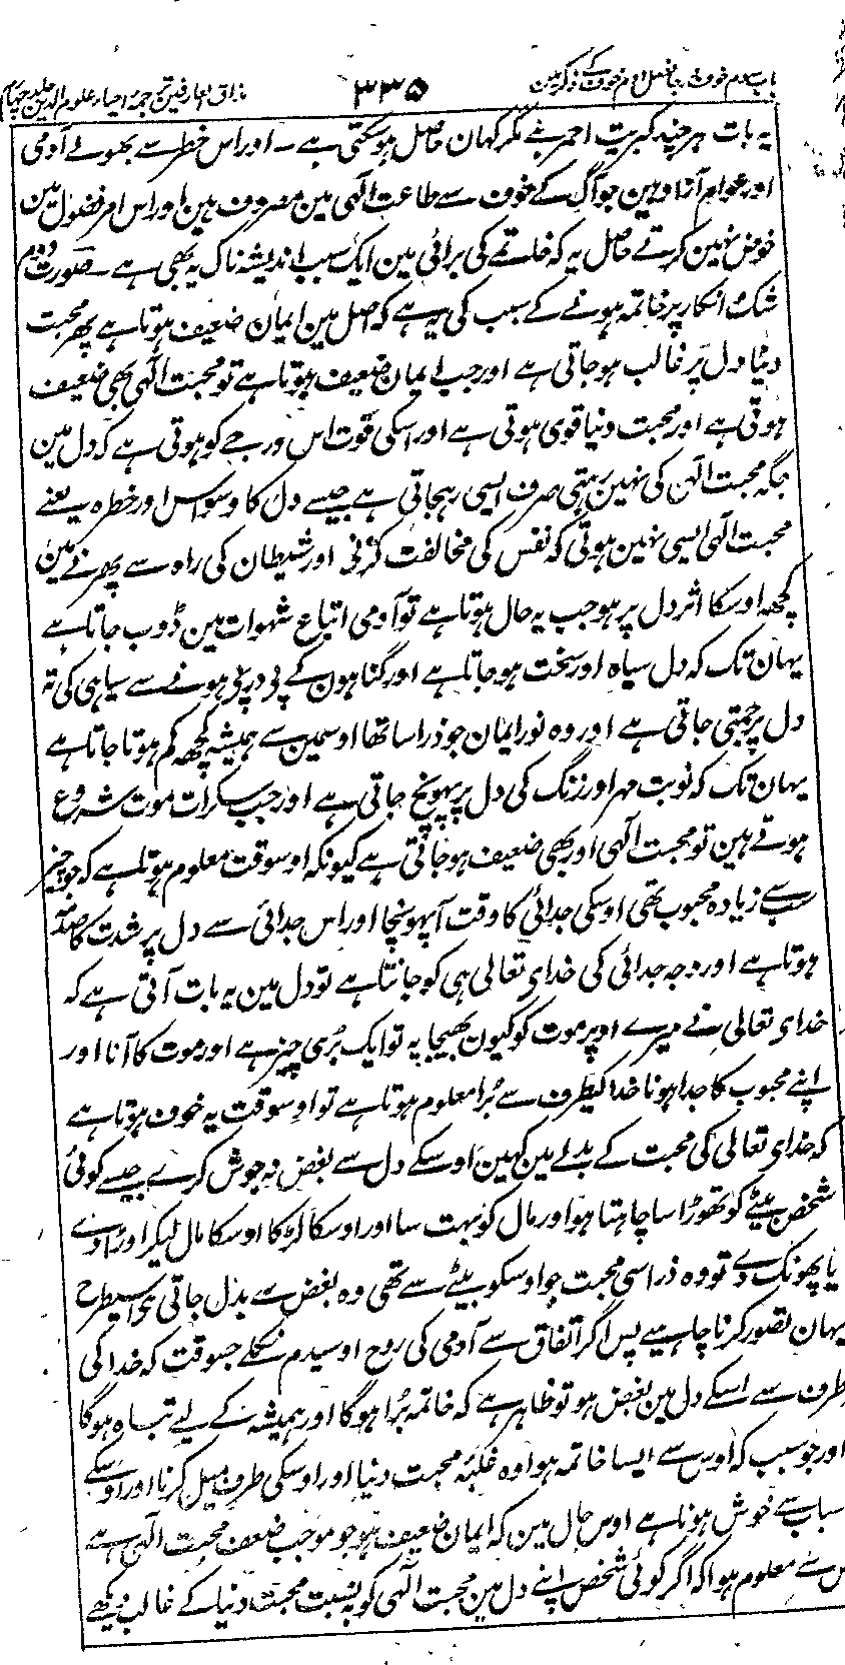 باب سوم خوف و رجا فصل دوم خوف کے ذکر مین ۳۳۵ مذاق العارفین ترجمۂ احیاء علوم الدین جلد چہارم
یہ بات ہر چند کبریت احمر ہے مگر کہان حاصل ہوسکتی ہے۔ اور اس خطر سے بھولے آدمی
اور عوام آزاد ہین جو آگ کے خوف سے طاعت الٰہی مین مصروف ہین اور اس امر فضول مین
خوض نہین کرتے حاصل یہ کہ خاتمے کی برائی مین ایک سبب اندیشہ ناک یہ بھی ہے۔ صورت دوم
شک انکار پر خاتمہ ہونے کے سبب کی یہ ہے کہ اصل مین ایمان ضعیف ہوتا ہے پھر محبت
دنیا دل پر غالب ہوجاتی ہے اور جب ایمان ضعیف ہوتا ہے تو محبت الٰہی بھی ضعیف
ہوتی ہے اور محبت دنیا قوی ہوتی ہے اور اسکی قوت اس درجے کو ہوتی ہے کہ دل مین
جگہ محبت الٰہی کی نہین رہتی صرف ایسی رہجاتی ہے جیسے دل کا وسواس اور خطرہ یعنے
محبت الٰہی ایسی نہین ہوتی کہ نفس کی مخالفت کرنی اور شیطان کی راہ سے پھرنے مین
کچھ اوسکا اثر دل پر ہو جب یہ حال ہوتا ہے تو آدمی اتباع شہوات مین ڈوب جاتا ہے
یہان تک کہ دل سیاہ اور سخت ہوجاتا ہے اور گناہون کے پی درپی ہونے سے سیاہی کی تہ
دل پر جمتی جاتی ہے اور وہ نور ایمان جو ذرا سا تھا اوسمین سے ہمیشہ کچھ کم ہوتا جاتا ہے
یہان تک کہ نوبت مہر اور زنگ کی دل پر پہونچ جاتی ہے اور جب سکرات موت شروع
ہوتے ہین تو محبت الٰہی اور بھی ضعیف ہوجاتی ہے کیونکہ اوسوقت معلوم ہوتا ہے کہ جو چیز
سب سے زیادہ محبوب تھی اوسکی جدائی کا وقت آپہونچا اور اس جدائی سے دل پر شدت کا صدمہ
ہوتا ہے اور وجہ جدائی کی خدای تعالی ہی کو جانتا ہے تو دل مین یہ بات آتی ہے کہ
خدای تعالی نے میرے اوپر موت کو کیون بھیجا یہ تو ایک بُری چیز ہے اور موت کا آنا اور
اپنے محبوب کا جدا ہونا خدا کیطرف سے بُرا معلوم ہوتا ہے تو اوسوقت یہ خوف ہوتا ہے
کہ خدای تعالی کی محبت کے بدلے مین کہین اوسکے دل سے بغض نہ جوش کرے جیسے کوئی
شخص بیٹے کو تھوڑا سا چاہتا ہو اور مال کو بہت سا اور اوسکا لڑکا اوسکا مال لیکر اوڑادے
یا پھونک دے تو وہ ذرا سی محبت جو اوسکو بیٹے سے تھی وہ بغض سے بدل جاتی ہے اسیطرح
یہان تصور کرنا چاہیے پس اگر اتفاق سے آدمی کی روح اوسیدم نکلے جسوقت کہ خدا کی
طرف سے اسکے دل مین بغض ہو تو ظاہر ہے کہ خاتمہ بُرا ہوگا اور ہمیشہ کے لیے تباہ ہوگا
اور جو سبب کہ اوس سے ایسا خاتمہ ہوا وہ غلبۂ محبت دنیا اور اوسکی طرف میل کرنا اور اوسکے
سباب سے خوش ہونا ہے اوس حال مین کہ ایمان ضعیف ہو جو موجب ضعف محبت الٰہی ہے
س سے معلوم ہوا کہ اگر کوئی شخص اپنے دل مین محبت الٰہی کو بہ نسبت محبت دنیا کے غالب دیکھے